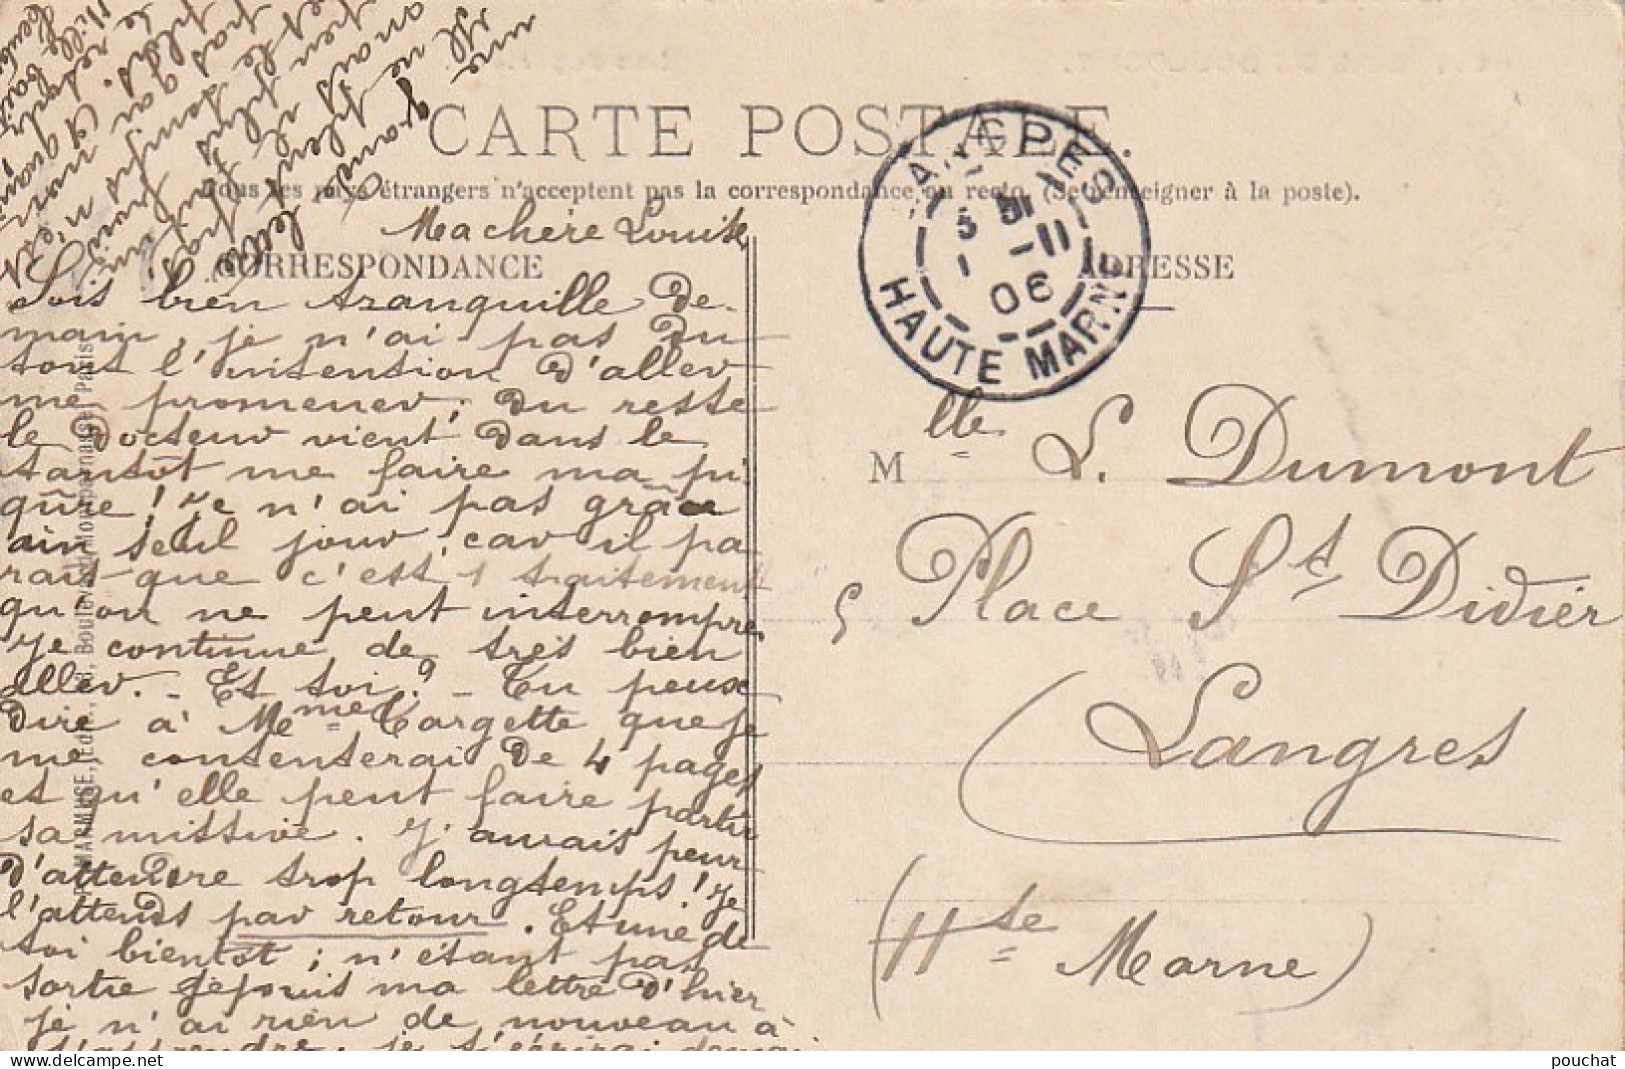 CARTE POSTALE.
Tous les pays étrangers n'acceptent pas la correspondance au recto. (Se renseigner à la poste).
CORRESPONDANCE
ADRESSE
LANGRES
5 E
1 -11
06
HAUTE MARNE
Ma chère Louise
Sois bien tranquille de-
main, je n'ai pas du
tout l'intention d'aller
me promener; du reste
le docteur vient dans le
tantôt me faire ma pi
qûre! Je n'ai pas grâce
d'un seul jour, car il pa
rait que c'est 1 traitement
qu'on ne peut interrompre
Je continue de très bien
aller. - Et toi? - Tu peux
dire à Mme Cargette que je
me contenterai de 4 pages
et qu'elle peut faire partir
sa missive. J'aurais peur
d'attendre trop longtemps! Je
l'attends par retour. Et une de
toi bientôt; n'étant pas
sortie depuis ma lettre d'hier
je n'ai rien de nouveau à
t'apprendre; je t'écrirai demai
une grande lettre
Mlle L. Dumont
5 Place St Didier
Langres
(Hte Marne)
MARMUSE, Edit., Boulevard Montparnasse, Paris
pouchat